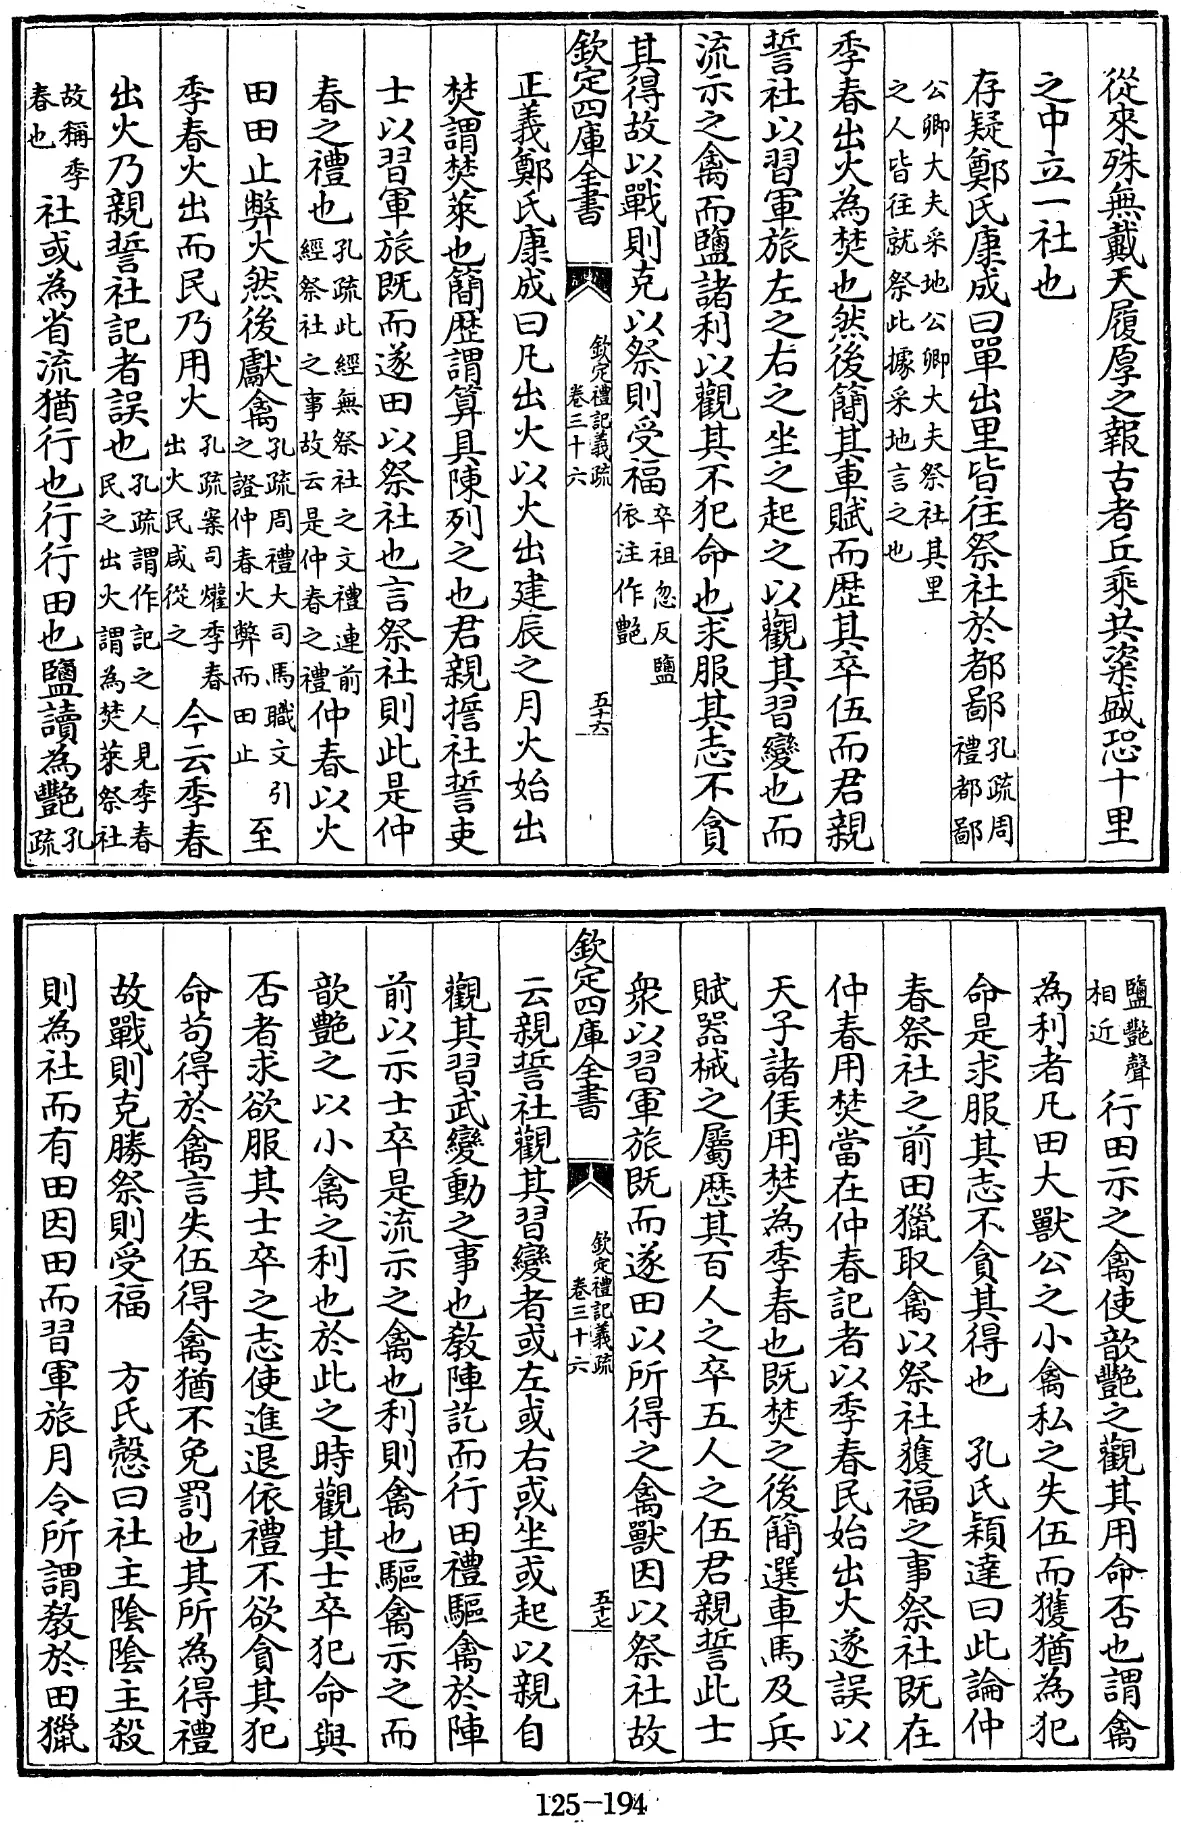 從來殊無戴天履厚之報古者丘乘共粢盛恐十里
之中立一社也
存疑鄭氏康成曰單出里皆往祭社於都鄙孔疏周禮都鄙
公卿大夫采地公卿大夫祭社其里
之人皆往就祭此據采地言之也
季春出火為焚也然後簡其車賦而歴其卒伍而君親
誓社以習軍旅左之右之坐之起之以觀其習變也而
流示之禽而鹽諸利以觀其不犯命也求服其志不貪
其得故以戰則克以祭則受福卒祖忽反鹽依注作艶
欽定四庫全書
欽定禮記義疏
卷三十六
五十六
正義鄭氏康成曰凡出火以火出建辰之月火始出
焚謂焚萊也簡歴謂算具陳列之也君親誓社誓吏
士以習軍旅既而遂田以祭社也言祭社則此是仲
春之禮也孔疏此經無祭社之文禮連前經祭社之事故云是仲春之禮仲春以火
田田止弊火然後獻禽孔疏周禮大司馬職文引之證仲春火弊而田止至
季春火出而民乃用火孔疏案司爟季春出火民咸從之今云季春
出火乃親誓社記者誤也孔疏謂作記之人見季春民之出火謂為焚萊祭社
故稱季春也社或為省流猶行也行行田也鹽讀為艷孔疏
鹽艷聲相近行田示之禽使歆艷之觀其用命否也謂禽
為利者凡田大獸公之小禽私之失伍而獲猶為犯
命是求服其志不貪其得也　孔氏穎達曰此論仲
春祭社之前田獵取禽以祭社獲福之事祭社既在
仲春用焚當在仲春記者以季春民始出火遂誤以
天子諸侯用焚為季春也既焚之後簡選車馬及兵
賦器械之屬歴其百人之卒五人之伍君親誓此士
衆以習軍旅既而遂田以所得之禽獸因以祭社故
欽定四庫全書
欽定禮記義疏
卷三十六
五十七
云親誓社觀其習變者或左或右或坐或起以親自
觀其習武變動之事也教陣訖而行田禮驅禽於陣
前以示士卒是流示之禽也利則禽也驅禽示之而
歆艷之以小禽之利也於此之時觀其士卒犯命與
否者求欲服其士卒之志使進退依禮不欲貪其犯
命苟得於禽言失伍得禽猶不免罰也其所為得禮
故戰則克勝祭則受福　方氏慤曰社主陰陰主殺
則為社而有田因田而習軍旅月令所謂教於田獵
125-194